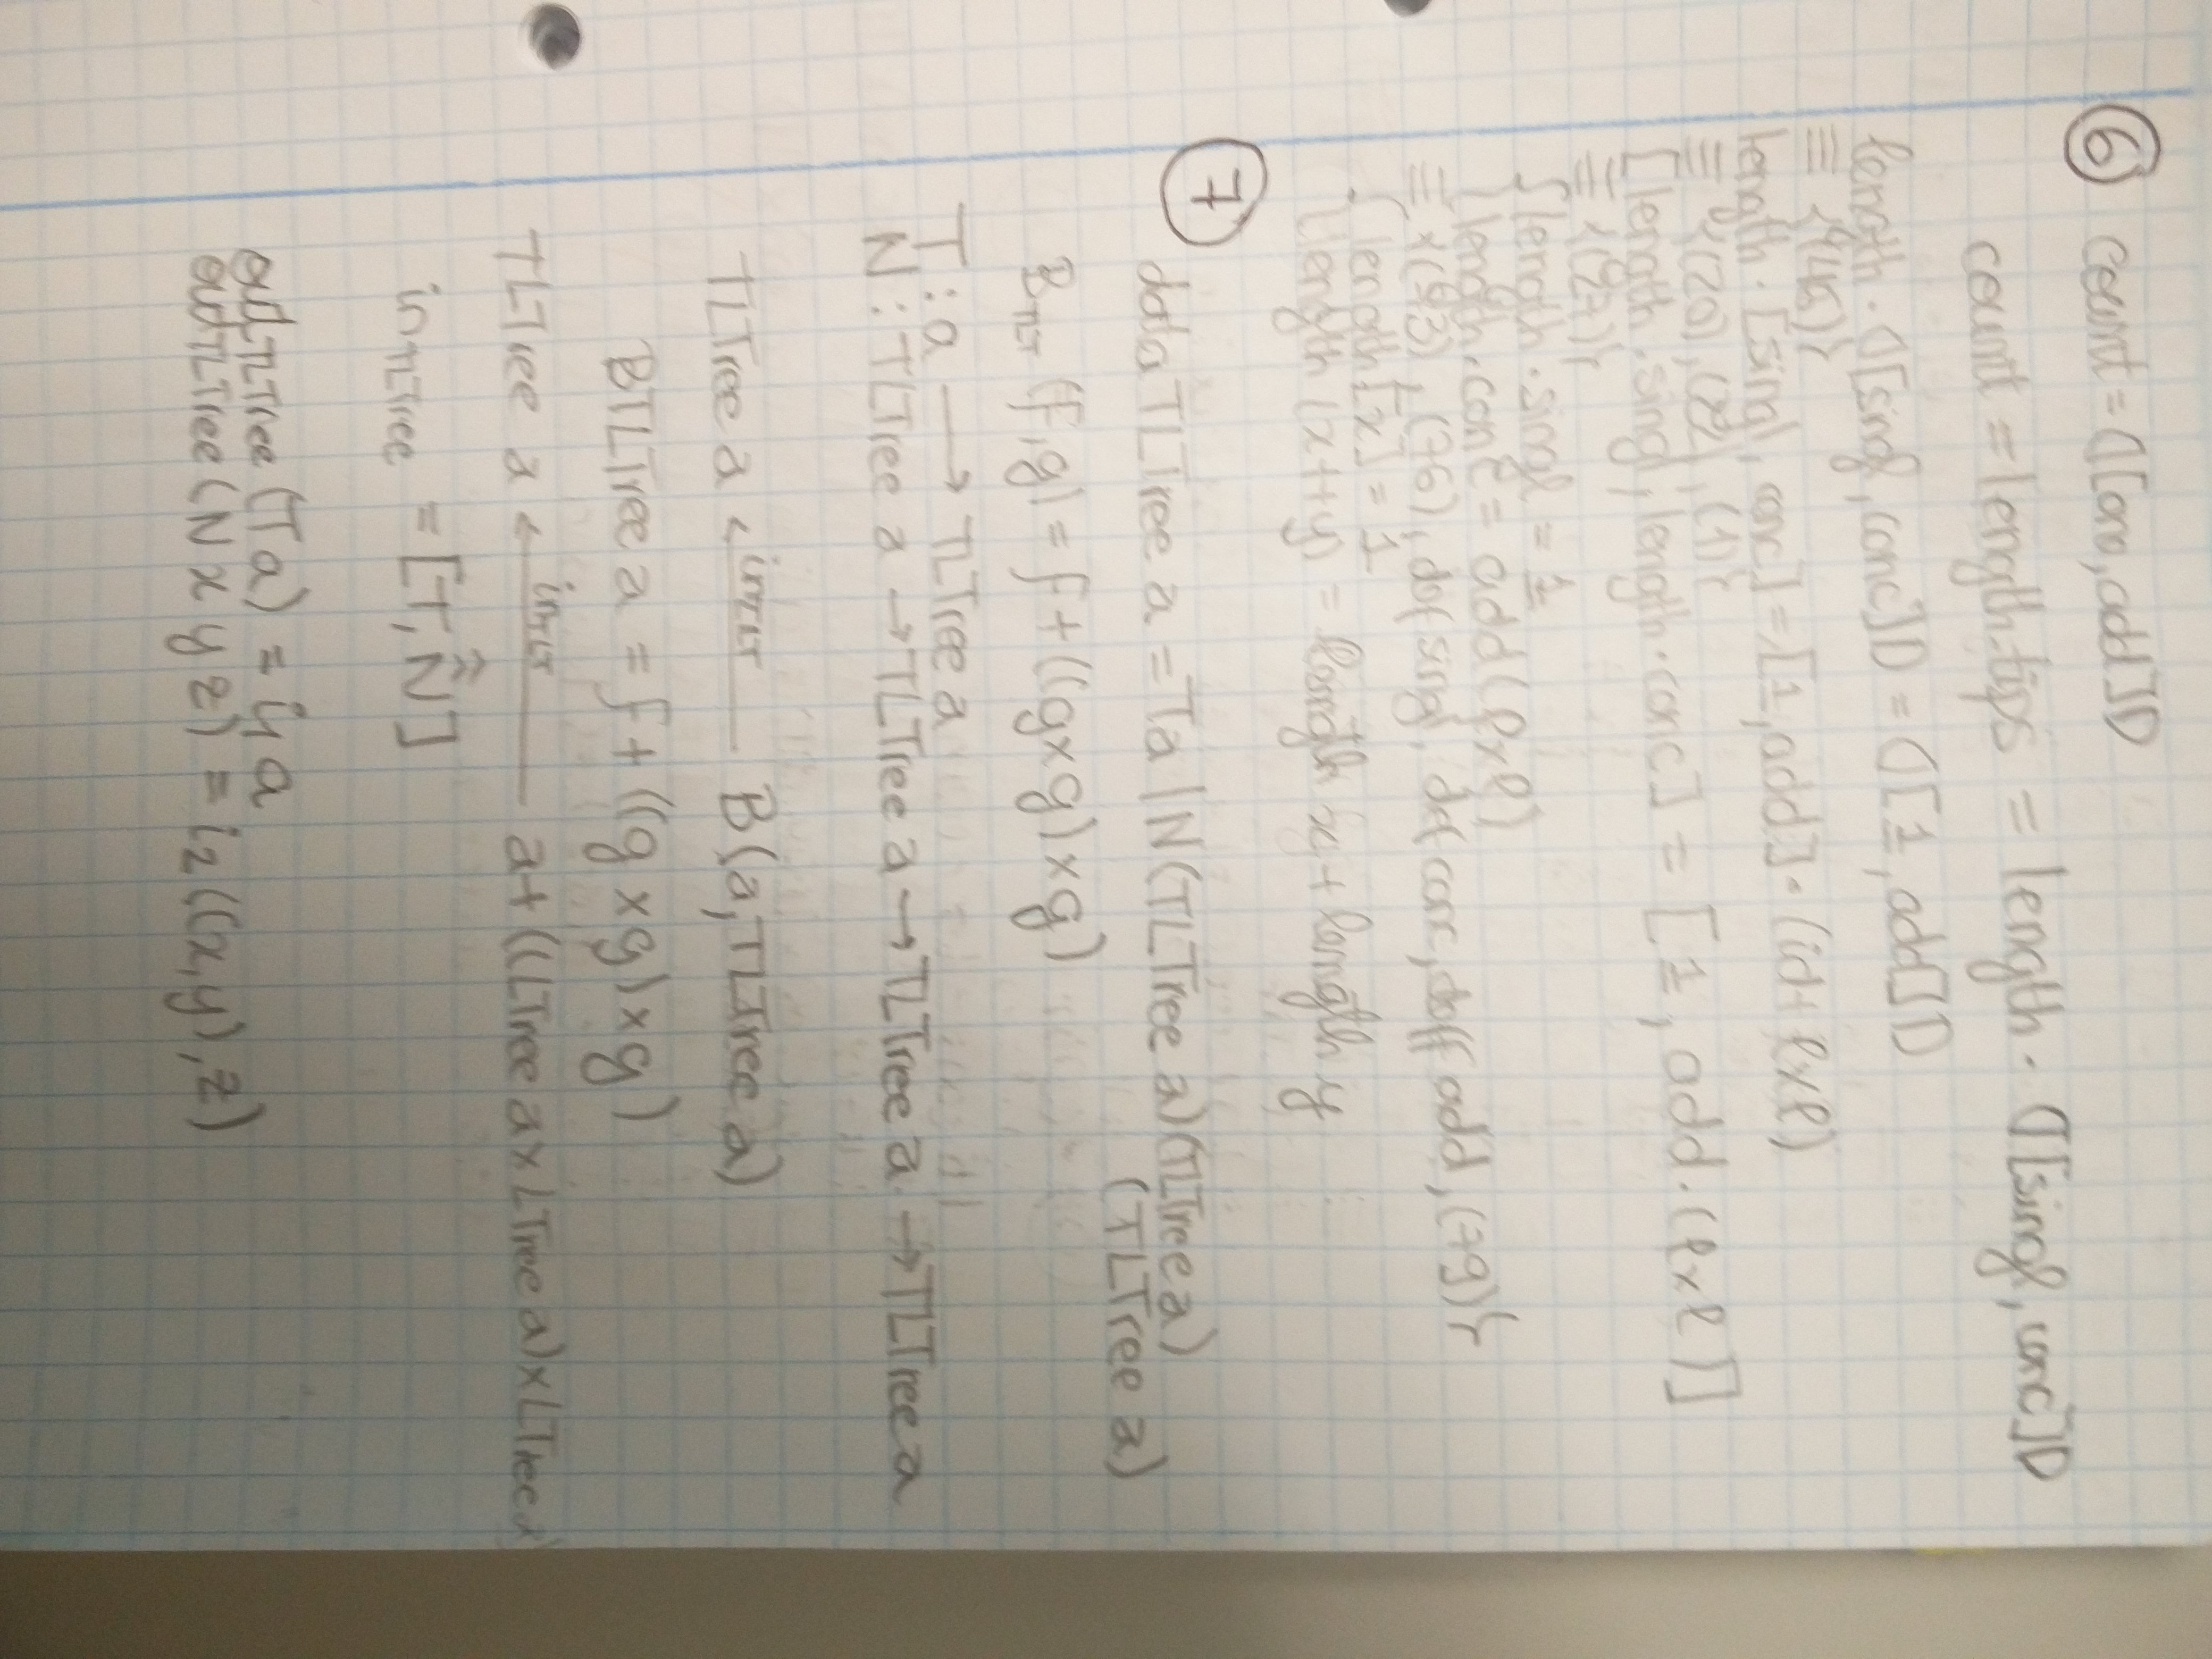 6 count = ⦇[one, add]⦈
count = length.tips = length · ⦇[singl, conc]⦈
length · ⦇[singl, conc]⦈ = ⦇[1, add]⦈
≡ {(46)}
length · [singl, conc] = [1, add] · (id + l×l)
≡ {(20), (22), (1)}
[length · singl, length · conc] = [1, add · (l×l)]
≡ {(27)}
{ length · singl = 1
length · conc = add(l×l)
≡ {(73), (76), def singl, def conc, deff add, (79)}
{ length [x] = 1
length (x++y) = length x + length y
7
data TLTree a = T a | N (TLTree a) (TLTree a)
(TLTree a)
B TLT (f, g) = f + ((g×g)×g)
T : a → TLTree a
N : TLTree a → TLTree a → TLTree a → TLTree a
TLTree a ← inTLT B(a, TLTree a)
BTLTree a = f + ((g×g)×g)
TLTree a ← inTLT a + ((LTree a × LTree a) × LTree a)
in TLTree = [T, N̂̂]
out TLTree (T a) = i1 a
out TLTree (N x y z) = i2 ((x, y), z)